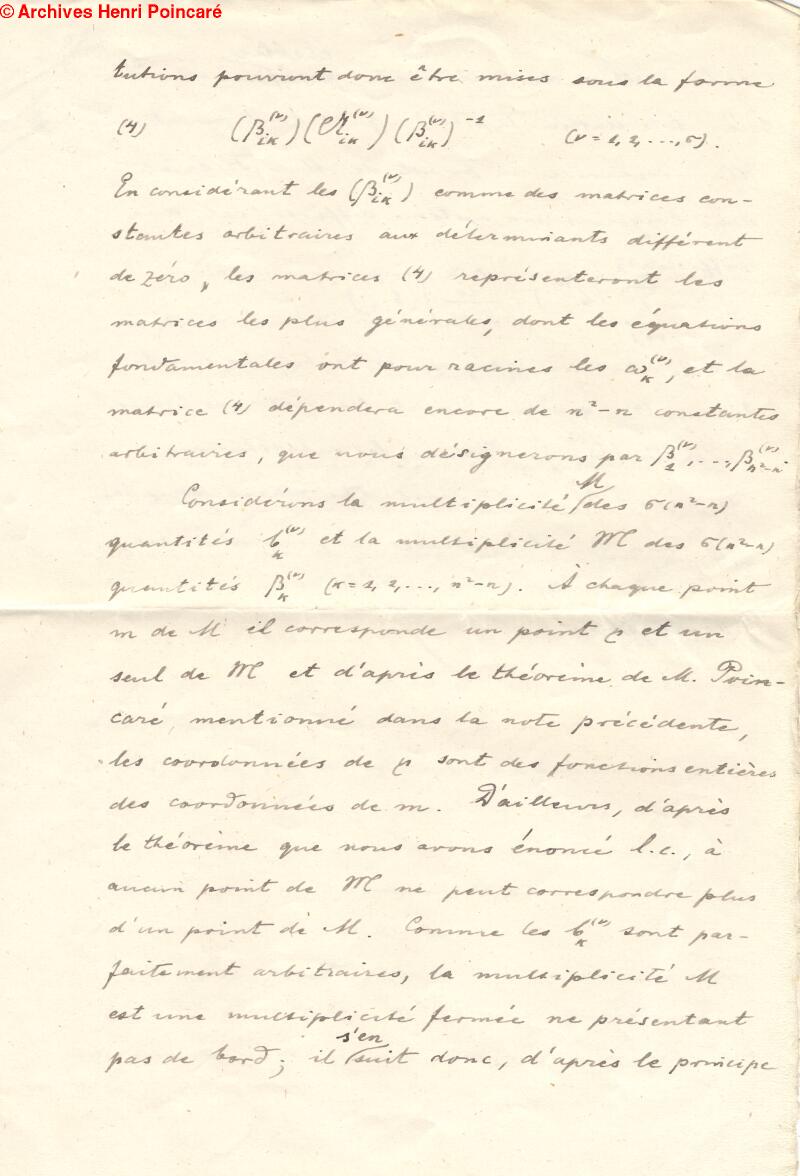 © Archives Henri Poincaré
tutions pouvront donc être mises sous la forme
(4) (β_{ik}^{(ν)}) (𝔄_{ik}^{(ν)}) (β_{ik}^{(ν)})^{-1} (ν = 1, 2, ..., σ).
En considérant les (β_{ik}^{(ν)}) comme des matrices con-
stantes arbitraires aux déterminants différent
de zéro, les matrices (4) représenteront les
matrices les plus générales, dont les équations
fondamentales ont pour racines les ω_κ^{(ν)}, et la
matrice (4) dépendera encore de n²-n constantes
arbitraires, que nous désignerons par β_1^{(ν)}, ..., β_{n²-n}^{(ν)}.
Considérons la multiplicité M des σ(n²-n)
quantités b_κ^{(ν)} et la multiplicité 𝔐 des σ(n²-n)
quantités β_κ^{(ν)} (κ = 1, 2, ..., n²-n). À chaque point
m de M il corresponde un point μ et un
seul de 𝔐 et d'après le théorème de M. Poin-
caré, mentionné dans la note précédente,
les coordonnées de μ sont des fonctions entières
des coordonnées de m. D'ailleurs, d'après
le théorème que nous avons énoncé l.c., à
aucun point de 𝔐 ne peut correspondre plus
d'un point de M. Comme les b_κ^{(ν)} sont par-
faitement arbitraires, la multiplicité M
est une multiplicité fermée ne présentant
pas de bord; il s'en suit donc, d'après le principe